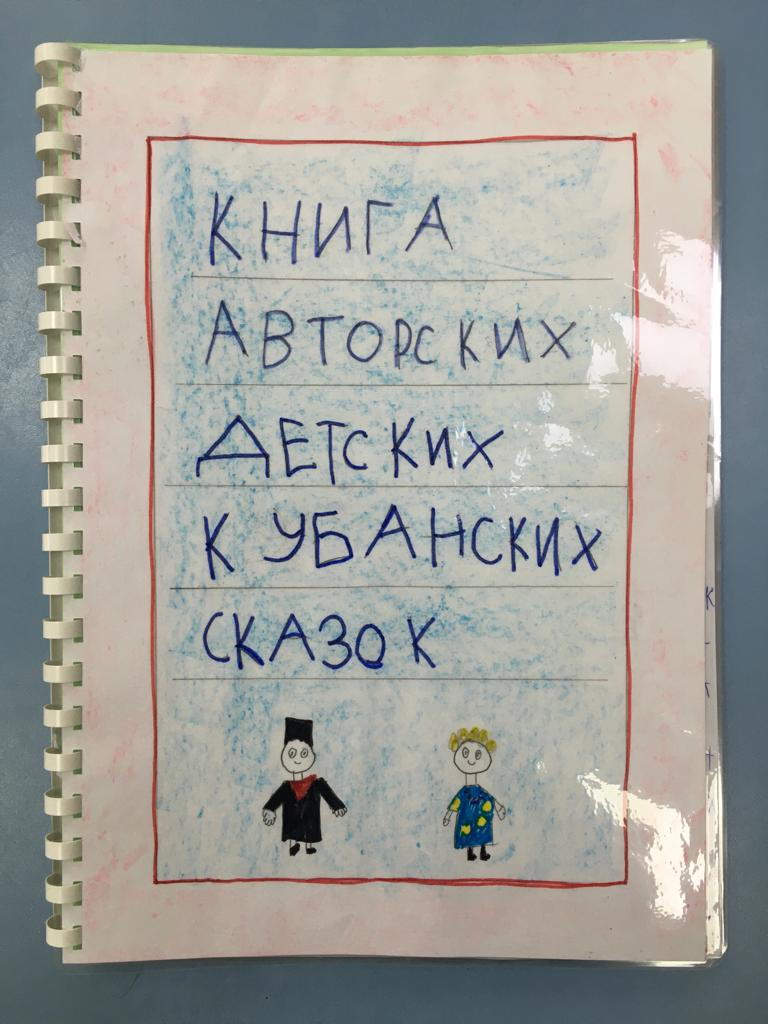 КНИГА
АВТОРСКИХ
ДЕТСКИХ
КУБАНСКИХ
СКАЗОК